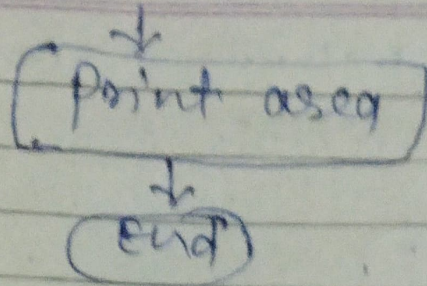 Print area
End